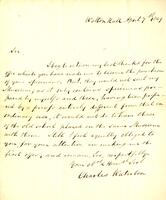 Walton Hall April 7th
Sir
I beg to return my best thanks for the
offer which you have made me to become the purchaser
of your specimens. But, they would not suit my
Museum; as it only contains specimens pre-
pared by myself; and these, having been prepared
by a process entirely different from the com-
mon one, it would not do to have those
of the old school placed in the same Museum
with them. I feel equally obliged to
you for your attention in making me the
first offer; and remain, Sir, respectfully
Your obt humble Sert
Charles Waterton